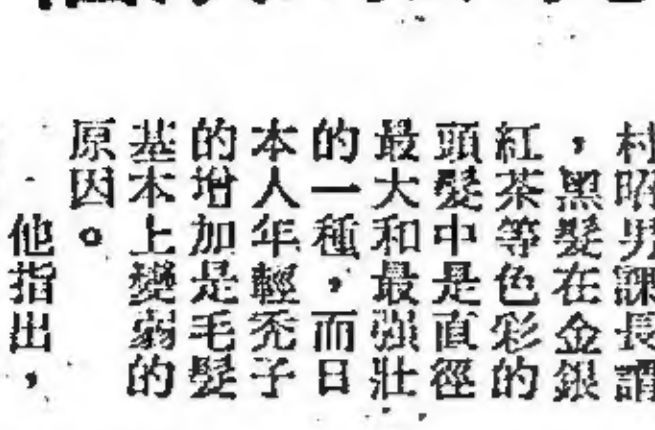 村昭男課長謂
，黑髮在金銀
紅茶等色彩的
頭髮中是直徑
最大和最强壯
的一種，而日
本人年輕禿子
的增加是毛髮
基本上變弱的
原因。
他指出，